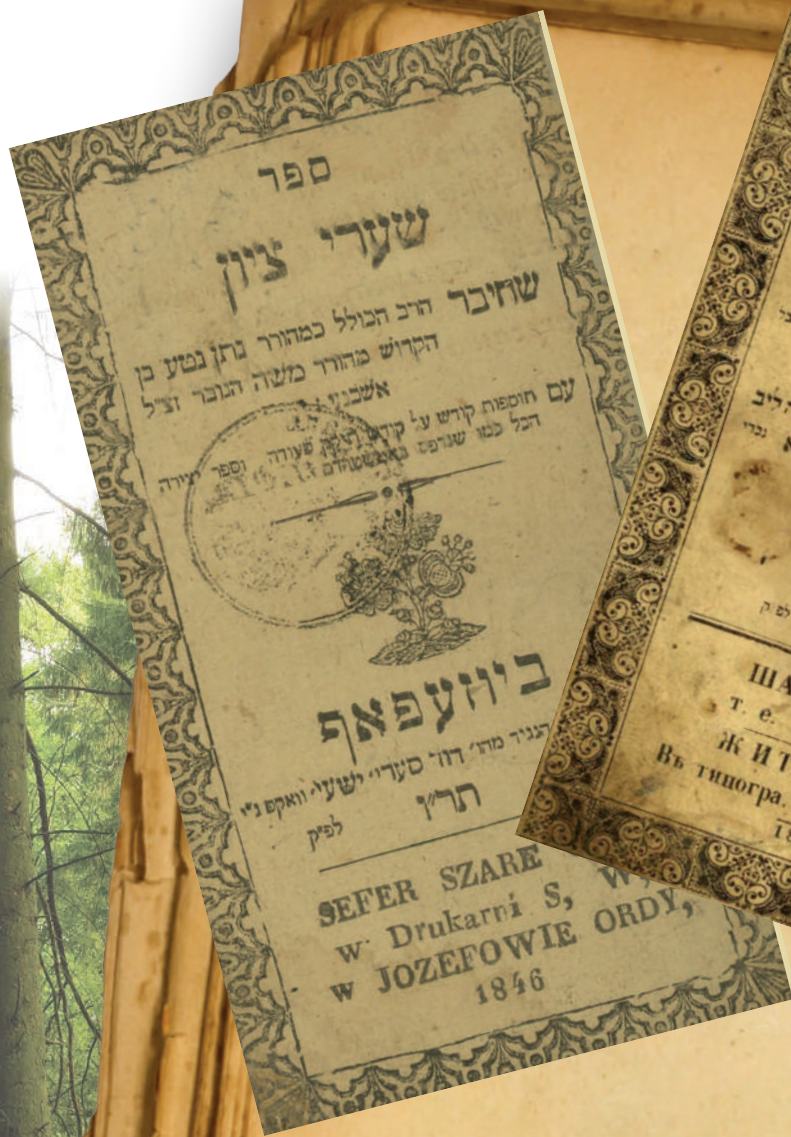 ספר
שערי ציון
שחיבר הרב הכולל כמהורר נתן נטע בן
הקדוש מהורר משה הנובר זצ״ל
עם תוספות קודש על קודש וספר יצירה
הכל כמו שנדפס
ביוזעפאף
הנגיד מהו׳ דוד סערי׳ ישעי׳ וואקס נ״י
תר״ו
לפ״ק
SEFER SZARE
w Drukarni S, W,
w JOZEFOWIE ORDY,
1846
ША
т. е.
ЖИТ
Въ типогра.
18